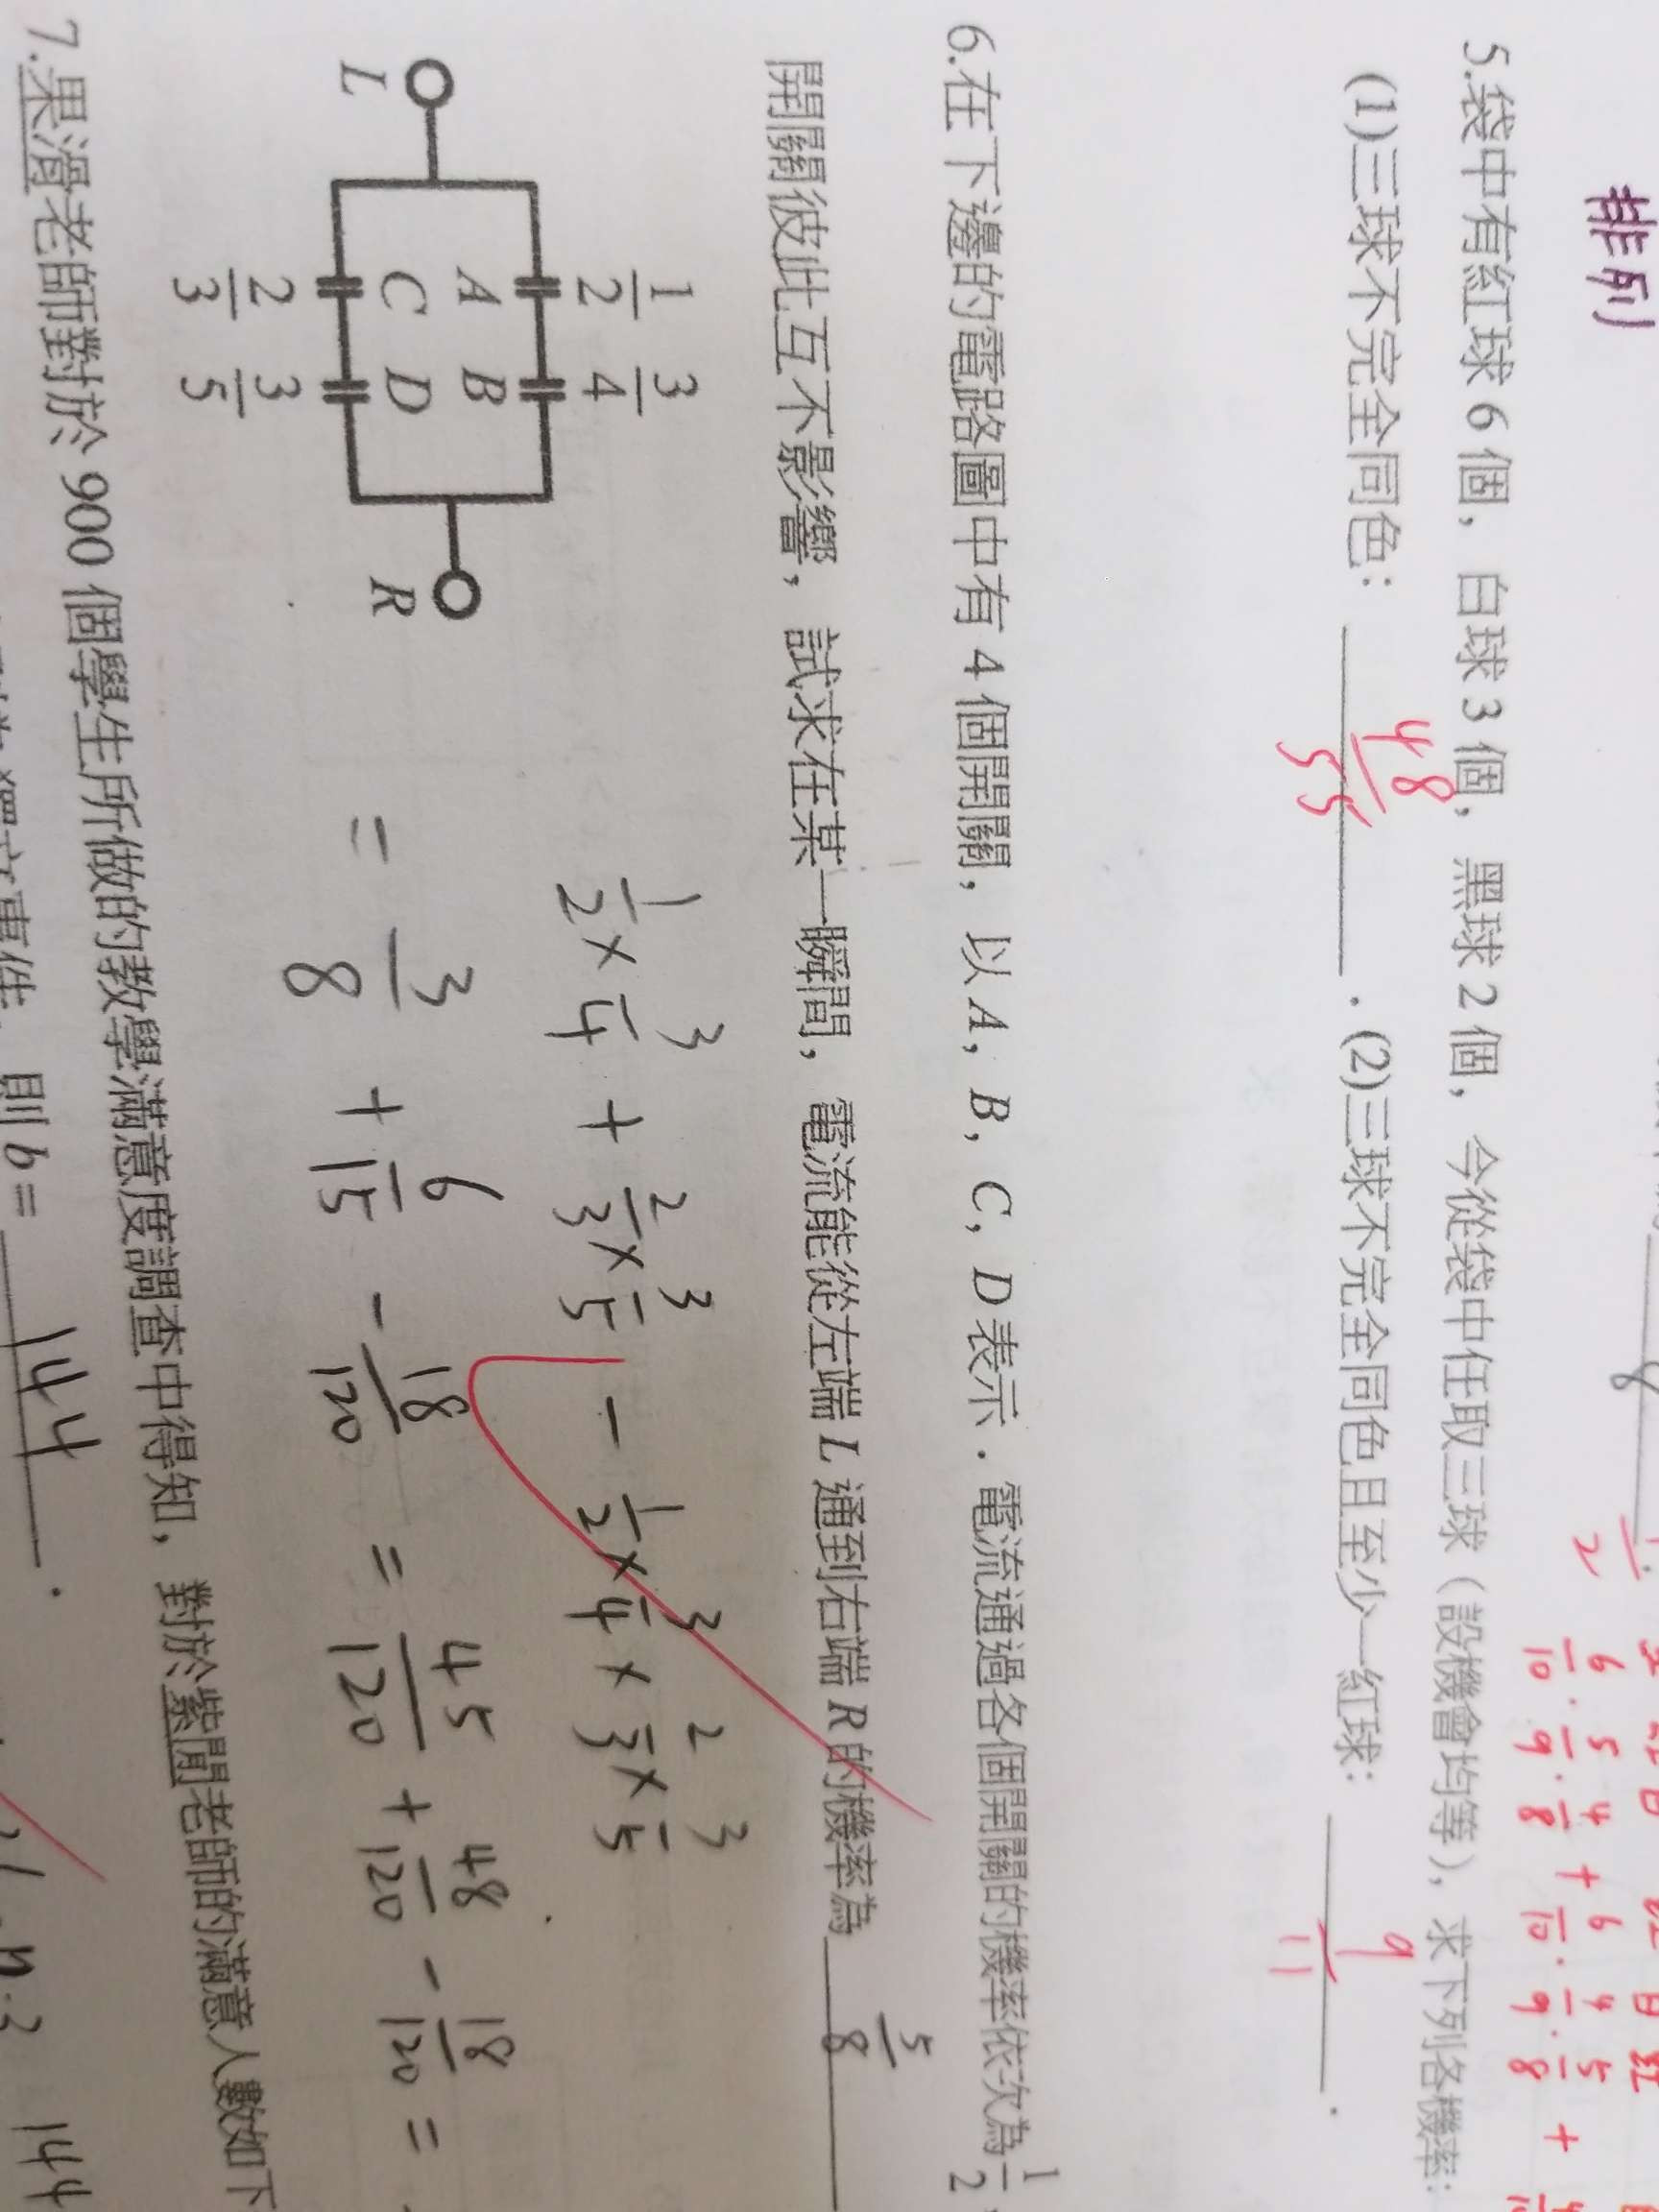 排列
8
1/2
6/10 · 5/9 · 4/8 + 6/10 · 4/9 · 5/8 +
5.袋中有紅球 6 個，白球 3 個，黑球 2 個，今從袋中任取三球（設機會均等），求下列各機率：
(1)三球不完全同色：48/55．(2)三球不完全同色且至少一紅球：9/11．
6.在下邊的電路圖中有 4 個開關，以 A，B，C，D 表示．電流通過各個開關的機率依次為 1/2
開關彼此互不影響，試求在某一瞬間，電流能從左端 L 通到右端 R 的機率為 5/8
1/2 3/4
A B
C D
2/3 3/5
L R
1/2 × 3/4 + 2/3 × 3/5 − 1/2 × 3/4 × 2/3 × 3/5
= 3/8 + 6/15 − 18/120 = 45/120 + 48/120 − 18/120 =
7.果滑老師對於 900 個學生所做的教學滿意度調查中得知，對於紫閒老師的滿意人數如下
則 b = 144．
144